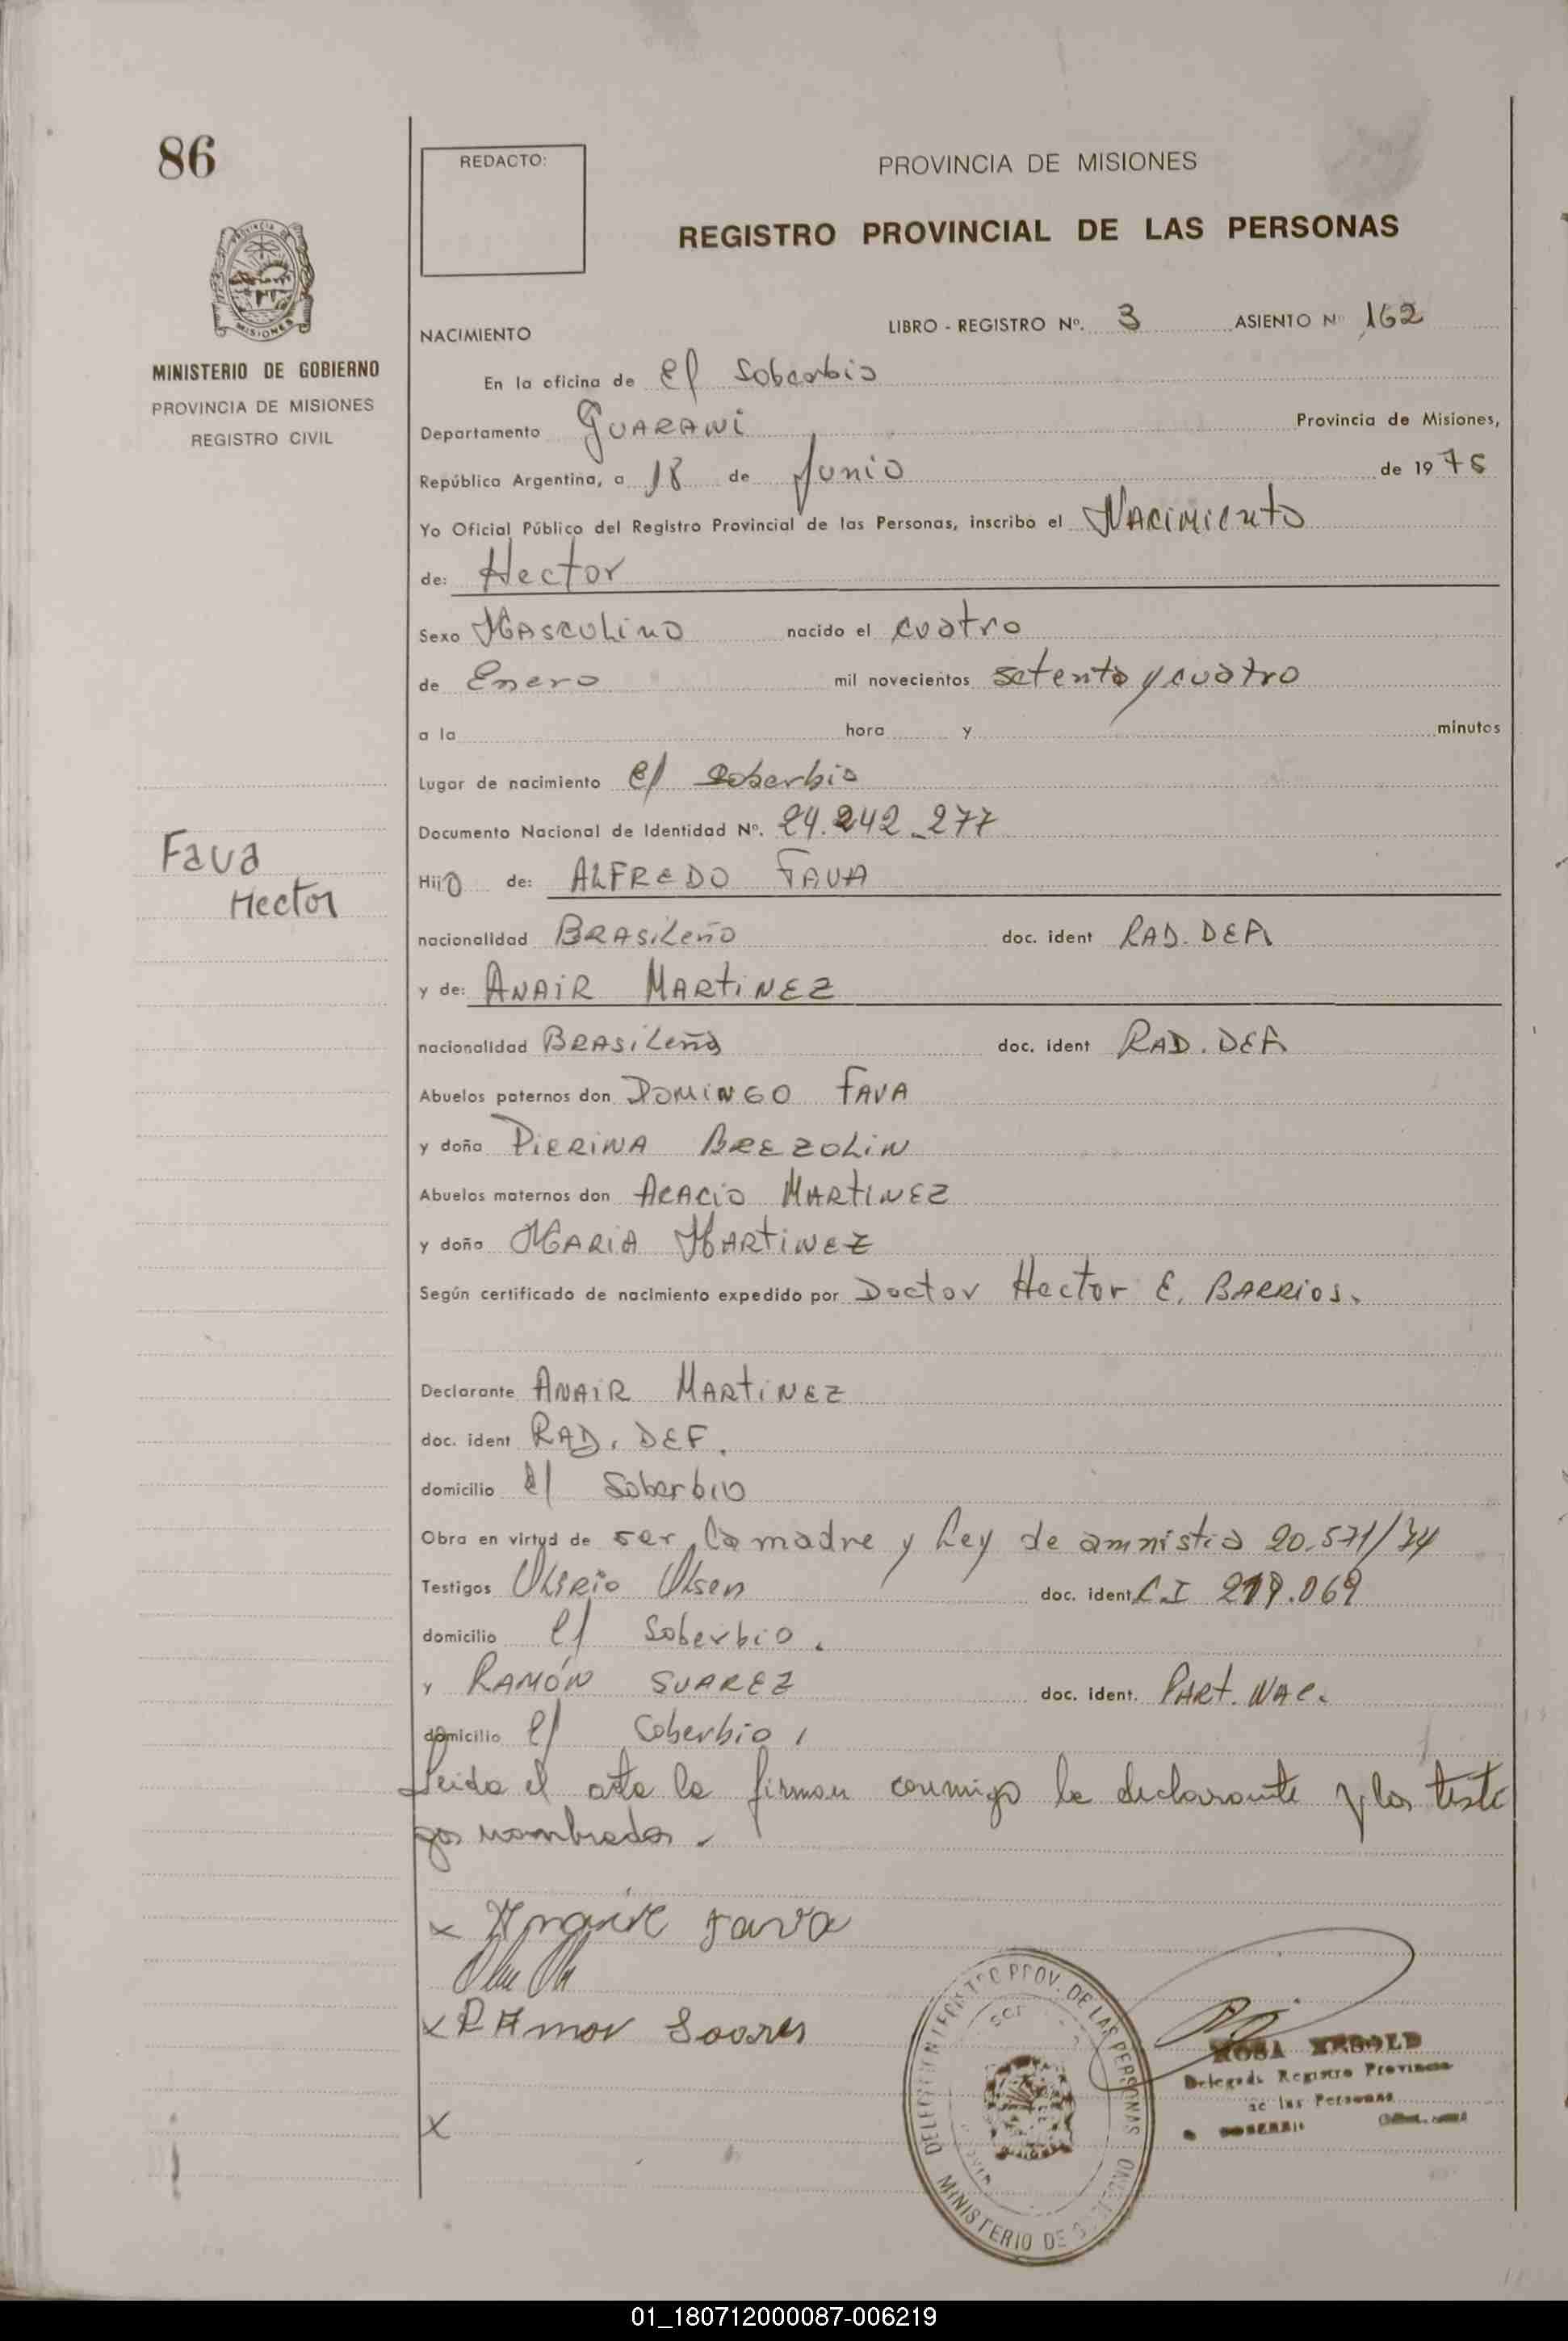 86
REDACTO:
PROVINCIA DE MISIONES
REGISTRO PROVINCIAL DE LAS PERSONAS
MISIONES
MINISTERIO DE GOBIERNO
PROVINCIA DE MISIONES
REGISTRO CIVIL
NACIMIENTO
LIBRO - REGISTRO Nº. 3 ASIENTO Nº 162
En la oficina de El Soberbio
Departamento GUARANI Provincia de Misiones,
República Argentina, a 18 de Junio de 19
Yo Oficial Público del Registro Provincial de las Personas, inscribo el NACIMIENTO
de: Hector
Sexo MASCULINO nacido el cuatro
de Enero mil novecientos setenta y cuatro
a la hora y minutos
Lugar de nacimiento El Soberbio
Documento Nacional de Identidad Nº. 24.242.277
Fava
Hector
Hijo de: ALFREDO FAVA
nacionalidad BRASILEÑO doc. ident RAD. DEF.
y de: ANAIR MARTINEZ
nacionalidad BRASILEÑA doc. ident RAD. DEF.
Abuelos paternos don DOMINGO FAVA
y doña PIERINA BREZOLIN
Abuelos maternos don ACACIO MARTINEZ
y doña MARIA MARTINEZ
Según certificado de nacimiento expedido por Doctor Hector E. BARRIOS.
Declarante ANAIR MARTINEZ
doc. ident RAD. DEF.
domicilio El Soberbio
Obra en virtud de ser la madre y Ley de amnistia 20.571/74
Testigos Olsen doc. ident C.I
domicilio El Soberbio.
y RAMÓN SUAREZ doc. ident. PART. NAC.
domicilio El Soberbio,
Leida el acta la firman conmigo la declarante y los testi
gos nombrados.
x Fava
x
x
PROV. DE LAS PERSONAS
MINISTERIO DE
ROSA
Delegada Registro Provincial
de las Personas
01_180712000087-006219